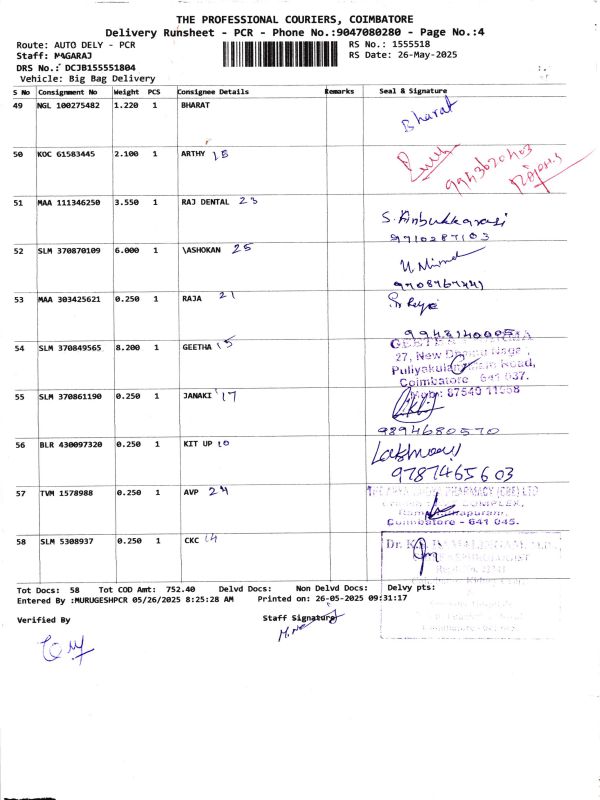 THE PROFESSIONAL COURIERS, COIMBATORE
Delivery Runsheet - PCR - Phone No.:9047080280 - Page No.:4
Route: AUTO DELY - PCR RS No.: 1555518
Staff: MAGARAJ RS Date: 26-May-2025
DRS No.: DCJB155551804
Vehicle: Big Bag Delivery
S No Consignment No Weight PCS Consignee Details Remarks Seal & Signature
49 NGL 100275482 1.220 1 BHARAT Bharat
50 KOC 61583445 2.100 1 ARTHY 15
9943620403
51 MAA 111346250 3.550 1 RAJ DENTAL 23 S. Anbukkarasi
9710287103
52 SLM 370870109 6.000 1 \ASHOKAN 25
9708767441
53 MAA 303425621 0.250 1 RAJA 21
9943140005
54 SLM 370849565 8.200 1 GEETHA 15 GEETHA PHARMA
27, New
Puliyakulam Road,
Coimbatore - 641 037.
55 SLM 370861190 0.250 1 JANAKI 17 Mob: 87540 11558
9894680570
56 BLR 430097320 0.250 1 KIT UP 10 Lakshmi
9787465603
57 TVM 1578988 0.250 1 AVP 24 PHARMACY (CBE) LTD
COMPLEX,
Ramanathapuram,
Coimbatore - 641 045.
58 SLM 5308937 0.250 1 CKC 14 Dr. K.
Tot Docs: 58 Tot COD Amt: 752.40 Delvd Docs: Non Delvd Docs: Delvy pts:
Entered By :MURUGESHPCR 05/26/2025 8:25:28 AM Printed on: 26-05-2025 09:31:17
Verified By Staff Signature